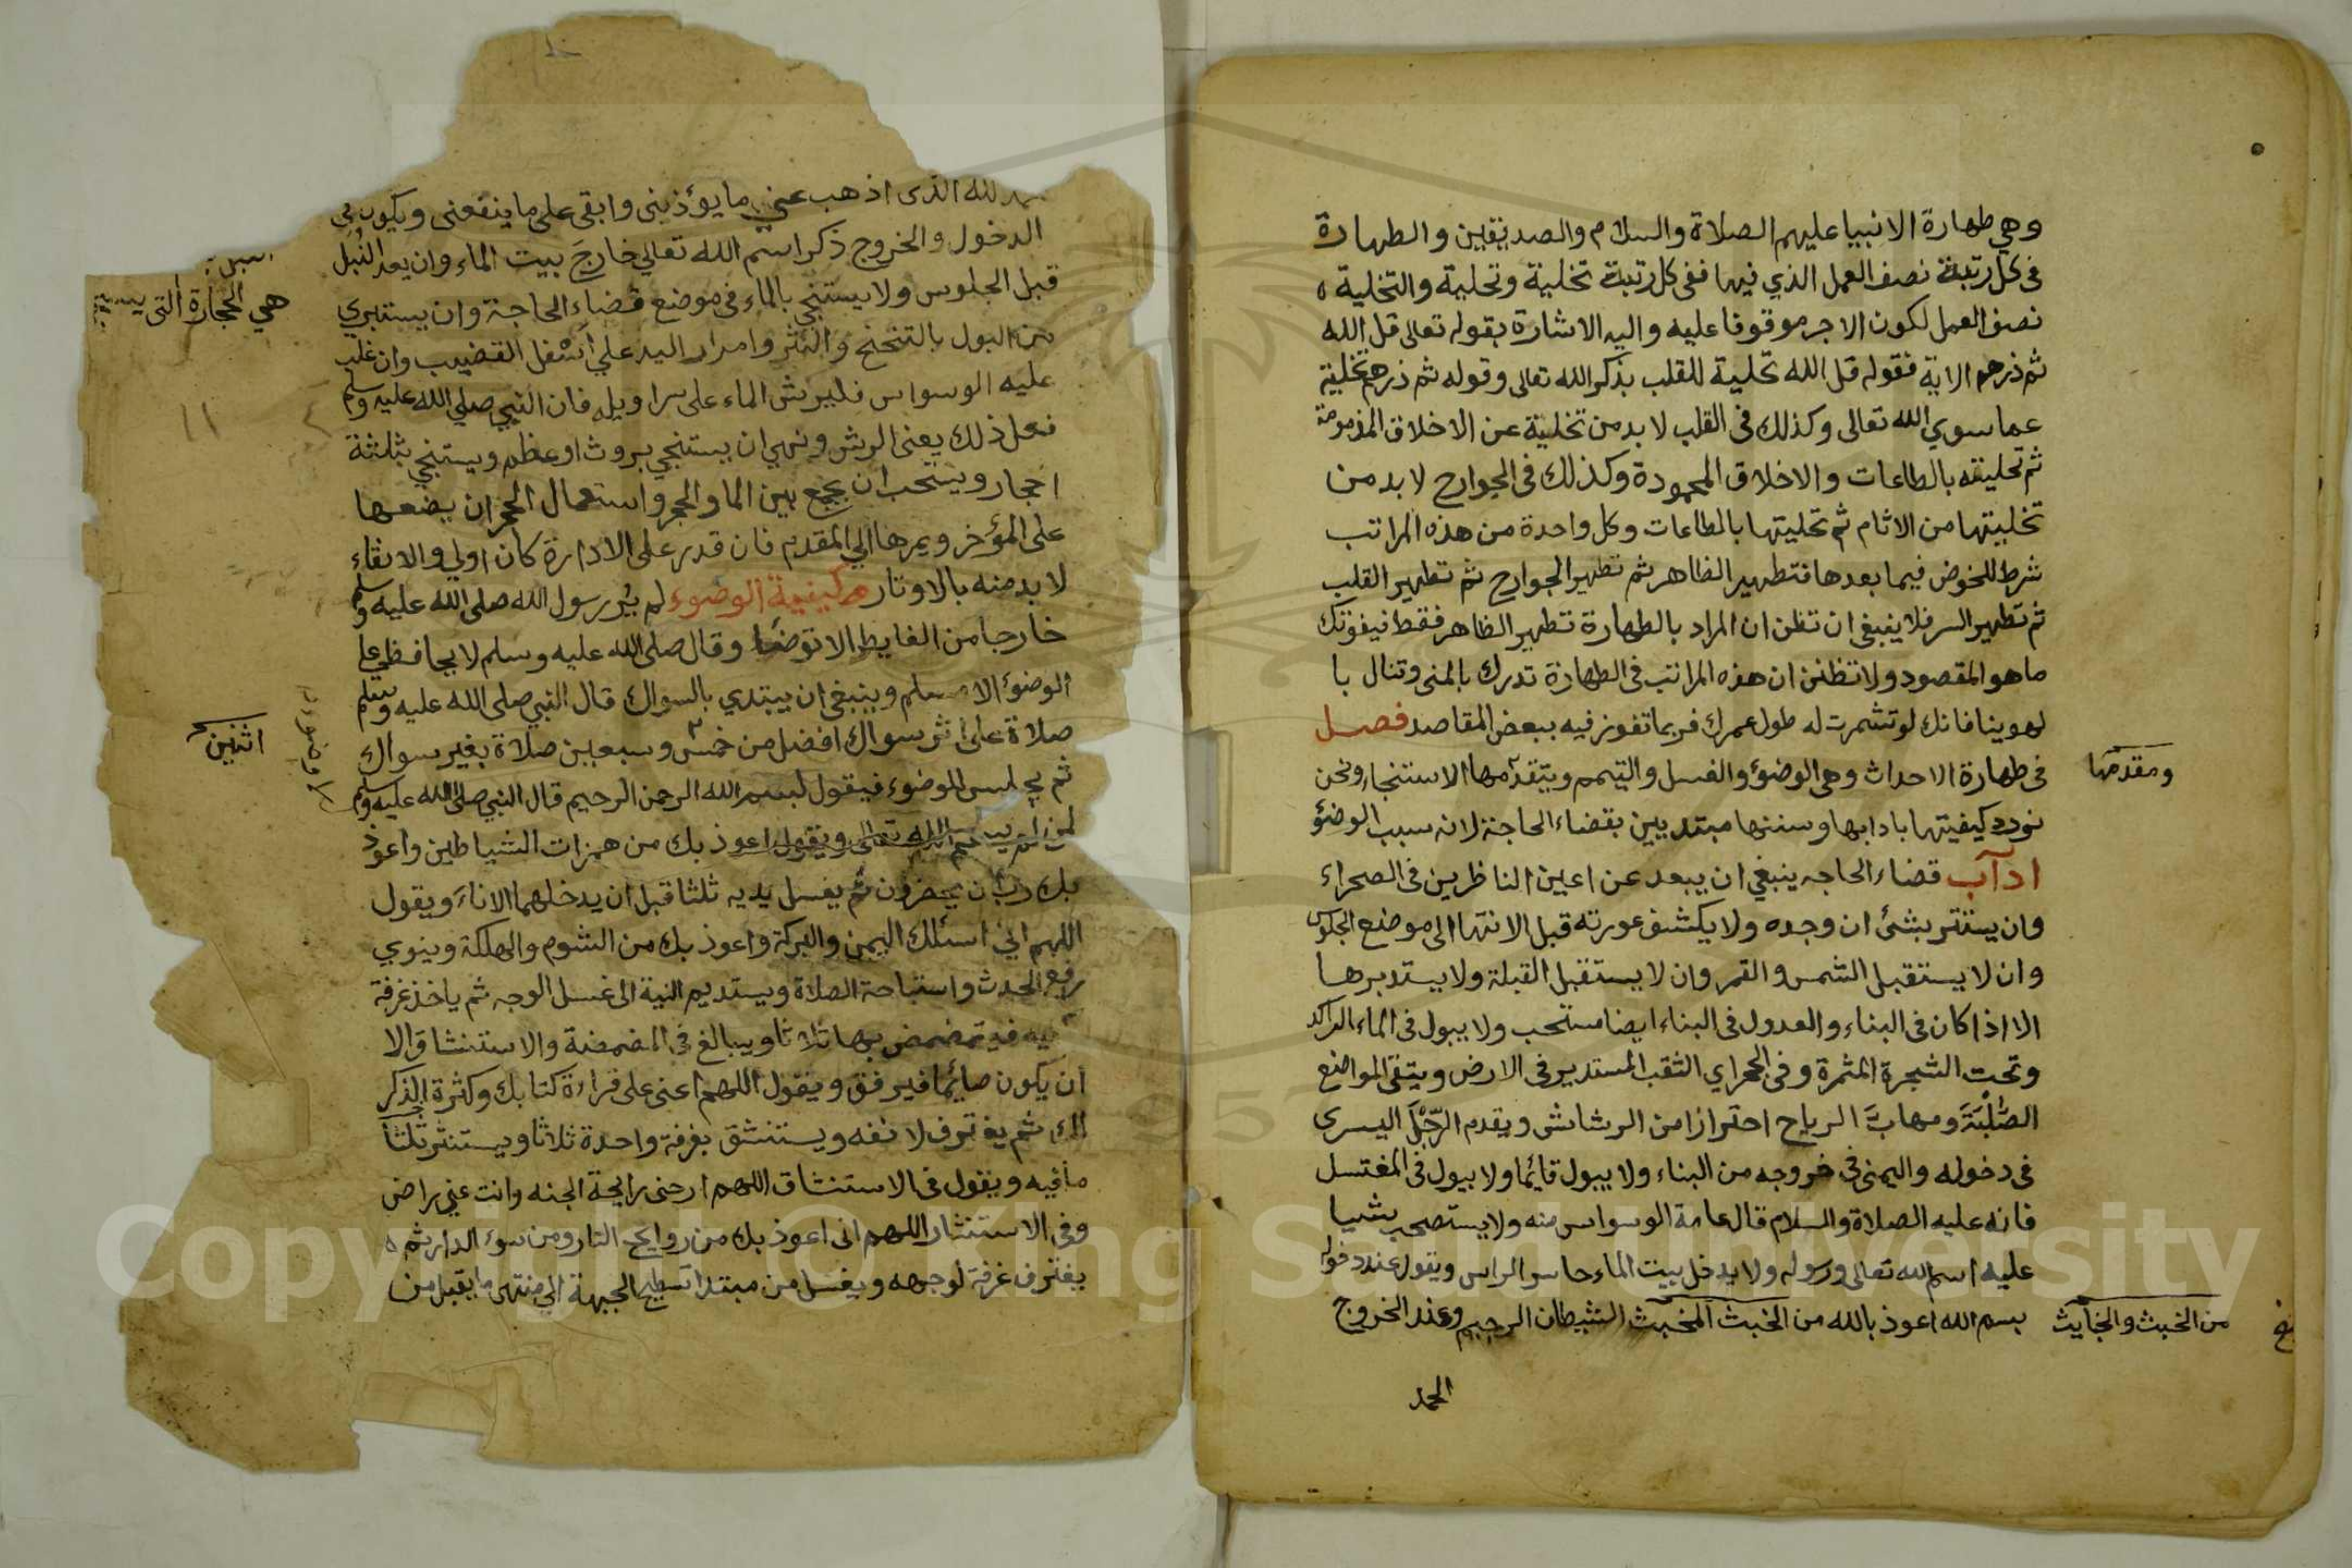 وهي طهارة الانبيا عليهم الصلاة والسلام والصديقين والطهارة
فى كل رتبة نصف العمل الذي فيها ففى كل رتبة تخلية وتحلية والتخلية
نصف العمل لكون الاجر موقوفا عليه واليه الاشارة بقوله تعالى قل الله
ثم ذرهم الاية فقوله قل الله تحلية للقلب بذكر الله تعالى وقوله ثم ذرهم تخلية
عما سوي الله تعالى وكذلك فى القلب لا بد من تخلية عن الاخلاق المذمومة
ثم تحليته بالطاعات والاخلاق المحمودة وكذلك فى الجوارح لا بد من
تخليتها من الاثام ثم تحليتها بالطاعات وكل واحدة من هذه المراتب
شرط للخوض فيما بعدها فتطهير الظاهر ثم تطهير الجوارح ثم تطهير القلب
ثم تطهير السر فلا ينبغى ان تظن ان المراد بالطهارة تطهير الظاهر فقط فيفوتك
ما هو المقصود ولا تظنن ان هذه المراتب فى الطهارة تدرك بالمنى وتنال با
لهوينا فانك لو تشمرت له طول عمرك فربما تفوز فيه ببعض المقاصد فصل
فى طهارة الاحداث وهى الوضوء والغسل والتيمم ويتقدمها الاستنجاء ونحن
ومقدمتها
نورد كيفيتها بادابها وسننها مبتديين بقضاء الحاجة لانه سبب الوضوء
اداب قضاء الحاجه ينبغي ان يبعد عن اعين الناظرين فى الصحراء
وان يستتر بشئ ان وجده ولا يكشف عورته قبل الانتها الى موضع الجلوس
وان لا يستقبل الشمس والقمر وان لا يستقبل القبلة ولا يستدبرها
الا اذا كان فى البناء والعدول فى البناء ايضا مستحب ولا يبول فى الماء الراكد
وتحت الشجرة المثمرة وفى الجحراي الثقب المستدير فى الارض ويتقى المواضع
الصُّلْبَةَ ومهابَّ الرياح احترازا من الرشاش ويقدم الرِّجْلَ اليسرى
فى دخوله واليمنى فى خروجه من البناء ولا يبول قائما ولا يبول فى المغتسل
فانه عليه الصلاة والسلام قال عامة الوسواس منه ولا يستصحب شيا
عليه اسم الله تعالى ورسوله ولا يدخل بيت الماء حاسر الراس ويقول عند دخوله
بسم الله اعوذ بالله من الخبث المخبث الشيطان الرجيم وعند الخروج
من الخبث والخبايث
الحمد
لله الذى اذهب عني ما يؤذينى وابقى على ما ينفعنى ويكون فى
الدخول والخروج ذكر اسم الله تعالى خارجَ بيت الماء وان يعد النُبل
قبل الجلوس ولا يستنجي بالماء فى موضع قضاء الحاجة وان يستبري
هي الحجارة التى
من البول بالتنحنح والنثر وامرار اليد على اسفل القضيب وان غلب
عليه الوسواس فليرش الماء على سراويله فان النبي صلي الله عليه وسلم
١١
فعل ذلك يعنى الرش ونهي ان يستنجي بروث او عظم ويستنجي بثلثة
احجار ويستحب ان يجمع بين الما والحجر واستعمال الحجر ان يضعها
على المؤخر ويمرها الي المقدم فان قدر على الادارة كان اولي والانقاء
لا بد منه بالاوتار كيفية الوضوء لم يُر رسول الله صلى الله عليه وسلم
خارجا من الغايط الا توضا وقال صلى الله عليه وسلم لا يحافظ على
الوضوء الا مسلم وينبغى ان يبتدي بالسواك قال النبي صلى الله عليه وسلم
صلاة على اثر سواك افضل من خمس وسبعين صلاة بغير سواك
اثنين
ثم يجلس للوضوء فيقول بسم الله الرحمن الرحيم قال النبي صلى الله عليه وسلم
لمن لم يسم الله تعالى ويقول اعوذ بك من همزات الشياطين واعوذ
بك رب ان يحضرون ثم يغسل يديه ثلثا قبل ان يدخلهما الاناء ويقول
اللهم اني اسئلك اليمن والبركة واعوذ بك من الشوم والهلكة وينوي
رفع الحدث واستباحة الصلاة ويستديم النية الى غسل الوجه ثم ياخذ غرفة
فيه فيتمضمض بها ثلاثا ويبالغ فى المضمضة والاستنشاق الا
ان يكون صايما فيرفق ويقول اللهم اعنى على قراءة كتابك وكثرة الذكر
لك ثم يغترف لانفه ويستنشق بغرفة واحدة ثلاثا ويستنثر ثلثا
ما فيه ويقول فى الاستنشاق اللهم ارحنى رايحة الجنه وانت عني راض
وفى الاستنثار اللهم انى اعوذ بك من روايح النار ومن سوء الدار ثم
يغترف غرفة لوجهه ويغسل من مبتدا تسطيح الجبهة الى منتهى ما يقبل من
Copyright © King Saud University